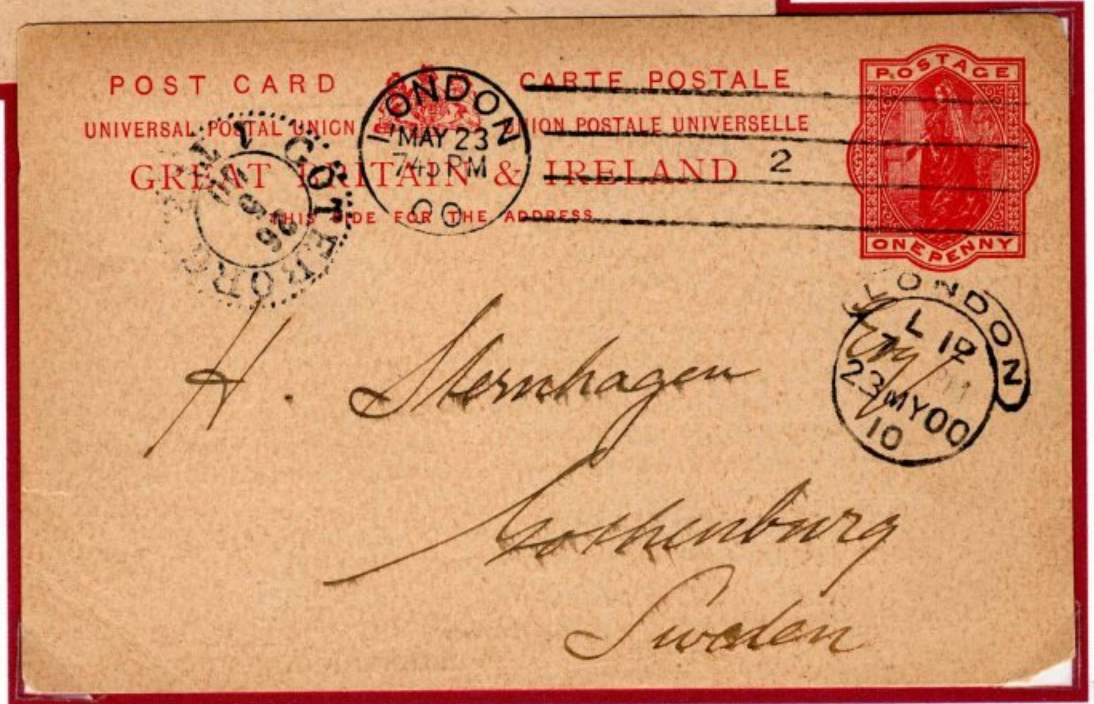 POST CARD CARTE POSTALE
UNIVERSAL POSTAL UNION UNION POSTALE UNIVERSELLE
GREAT BRITAIN & IRELAND
THIS SIDE FOR THE ADDRESS
POSTAGE
ONE PENNY
LONDON
MAY 23
745PM
00
2
GÖTEBORG
26
5
LONDON
L 12
23MY00
10
H. Sternhagen
Esq
Gothenburg
Sweden